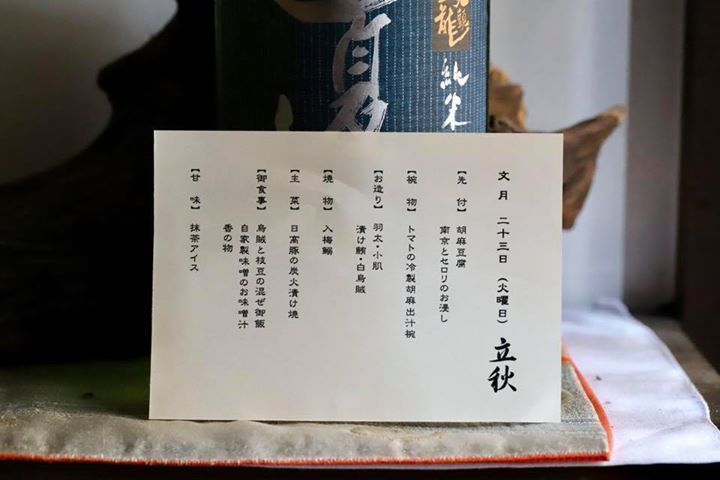 純米
文月 二十三日 (火曜日)
立秋
【先付】 胡麻豆腐
南京とセロリのお浸し
【椀物】 トマトの冷製胡麻出汁椀
【お造り】 羽太・小肌
漬け鮪・白烏賊
【焼物】 入梅鰯
【主菜】 日高豚の炭火漬け焼
【御食事】 烏賊と枝豆の混ぜ御飯
自家製味噌のお味噌汁
香の物
【甘味】 抹茶アイス